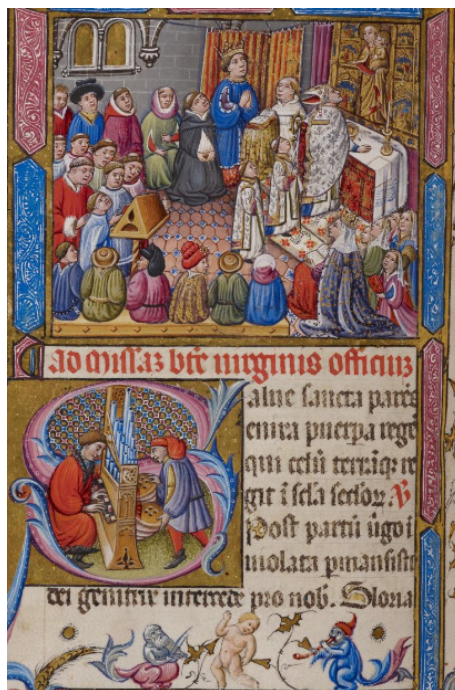 ad missaz bte virginis officiuz
alue sancta parēs
enixa puerpa rege
qui celū terrāqꝫ re
git ī scla sclorꝫ. V
Post partū vgo ī
violata pmansisti
dei genitrix intercede pro nob. Gloria